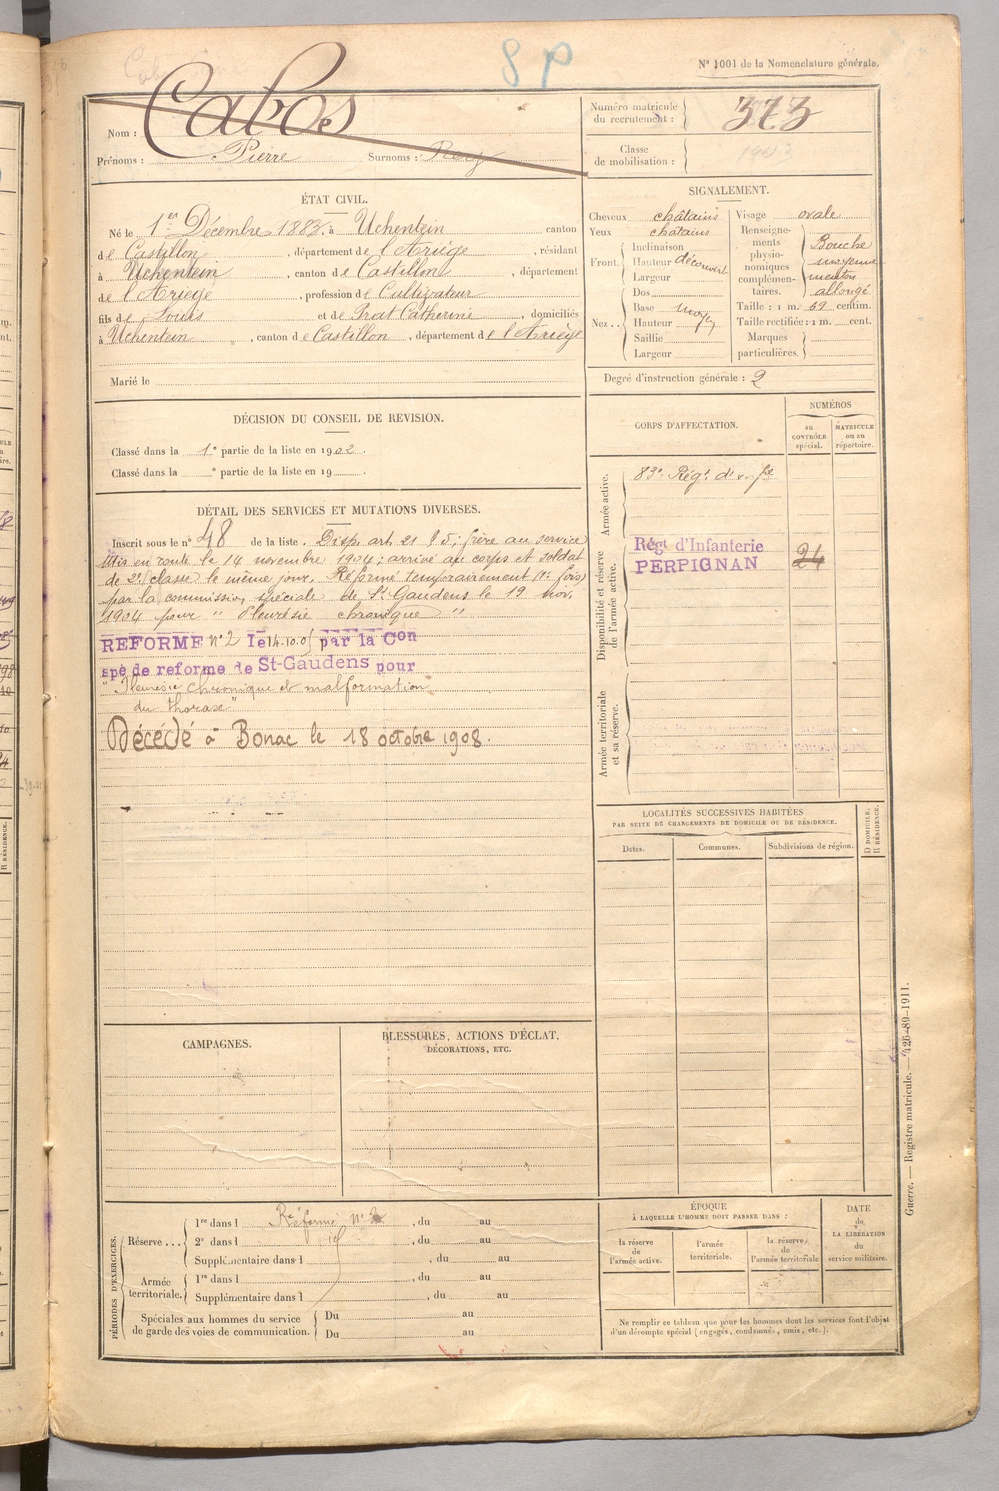 8 P
N° 1001 de la Nomenclature générale.
Cabos
Nom :
Prénoms : Pierre Surnoms :
Numéro matricule du recrutement : 373
Classe de mobilisation :
ÉTAT CIVIL.
Né le 1er Décembre 1883, à Uchentein canton
de Castillon, département de l'Ariège, résidant
à Uchentein, canton de Castillon, département
de l'Ariège, profession de Cultivateur
fils de Louis et de Prat Catherine, domiciliés
à Uchentein, canton de Castillon, département de l'Ariège
Marié le
SIGNALEMENT.
Cheveux châtains
Yeux châtains
Front. Inclinaison
Hauteur découvert
Largeur
Nez.. Dos
Base moyen
Hauteur
Saillie
Largeur
Visage ovale
Renseigne-
ments
physio-
nomiques
complémen-
taires.
Bouche
moyenne
menton
allongé
Taille : 1 m. 59 centim.
Taille rectifiée : 1 m. cent.
Marques
particulières.
Degré d'instruction générale : 2
DÉCISION DU CONSEIL DE REVISION.
Classé dans la 1e partie de la liste en 1902.
Classé dans la e partie de la liste en 19 .
DÉTAIL DES SERVICES ET MUTATIONS DIVERSES.
Inscrit sous le n° 48 de la liste. Disp. art. 21 § 5; frère au service
Mis en route le 14 novembre 1904; arrivé au corps et soldat
de 2e classe le même jour. Réformé temporairement (1e fois)
par la commission spéciale de St Gaudens le 19 nov.
1904 pour " Pleurésie chronique "
REFORME N° 2 le 14.10.05 par la Con
spé de reforme de St-Gaudens pour
"Pleurésie chronique et malformation
du thorax"
Décédé à Bonac le 18 octobre 1908.
CORPS D'AFFECTATION.
NUMÉROS
au
CONTRÔLE
spécial.
MATRICULE
ou au
répertoire.
Armée active.
83e Régt d'
Disponibilité et réserve
de l'armée active.
Régt d'Infanterie
PERPIGNAN
24
Armée territoriale
et sa réserve.
LOCALITÉS SUCCESSIVES HABITÉES
PAR SUITE DE CHANGEMENTS DE DOMICILE OU DE RÉSIDENCE.
D DOMICILE.
R RÉSIDENCE.
Dates.
Communes.
Subdivisions de région.
CAMPAGNES.
BLESSURES, ACTIONS D'ÉCLAT,
DÉCORATIONS, ETC.
PÉRIODES D'EXERCICES.
Réserve...
1re dans l Réformé N° 2, du au
2e dans l , du au
Supplémentaire dans l , du au
Armée
territoriale.
1re dans l , du au
Supplémentaire dans l , du au
Spéciales aux hommes du service
de garde des voies de communication.
Du au
Du au
ÉPOQUE
À LAQUELLE L'HOMME DOIT PASSER DANS :
la réserve
de
l'armée active.
l'armée
territoriale.
la réserve
de
l'armée territoriale
DATE
de
LA LIBÉRATION
du
service militaire.
Ne remplir ce tableau que pour les hommes dont les services font l'objet
d'un décompte spécial (engagés, condamnés, omis, etc.).
Guerre. — Registre matricule. — 426-89-1911.